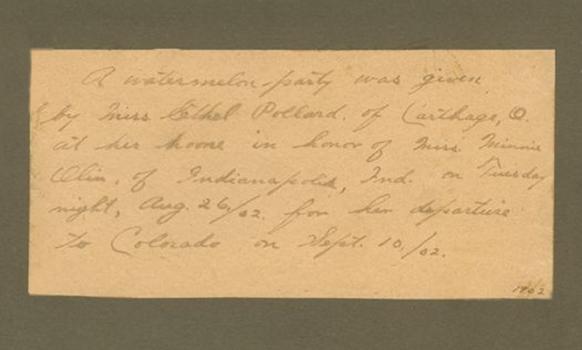 A watermelon-party was given
by Miss Ethel Pollard. of Carthage, O.
at her home in honor of Miss Minnie
Olin, of Indianapolis, Ind. on Tuesday
night, Aug. 26/02. for her departure
to Colorado on Sept. 10./02.
1902